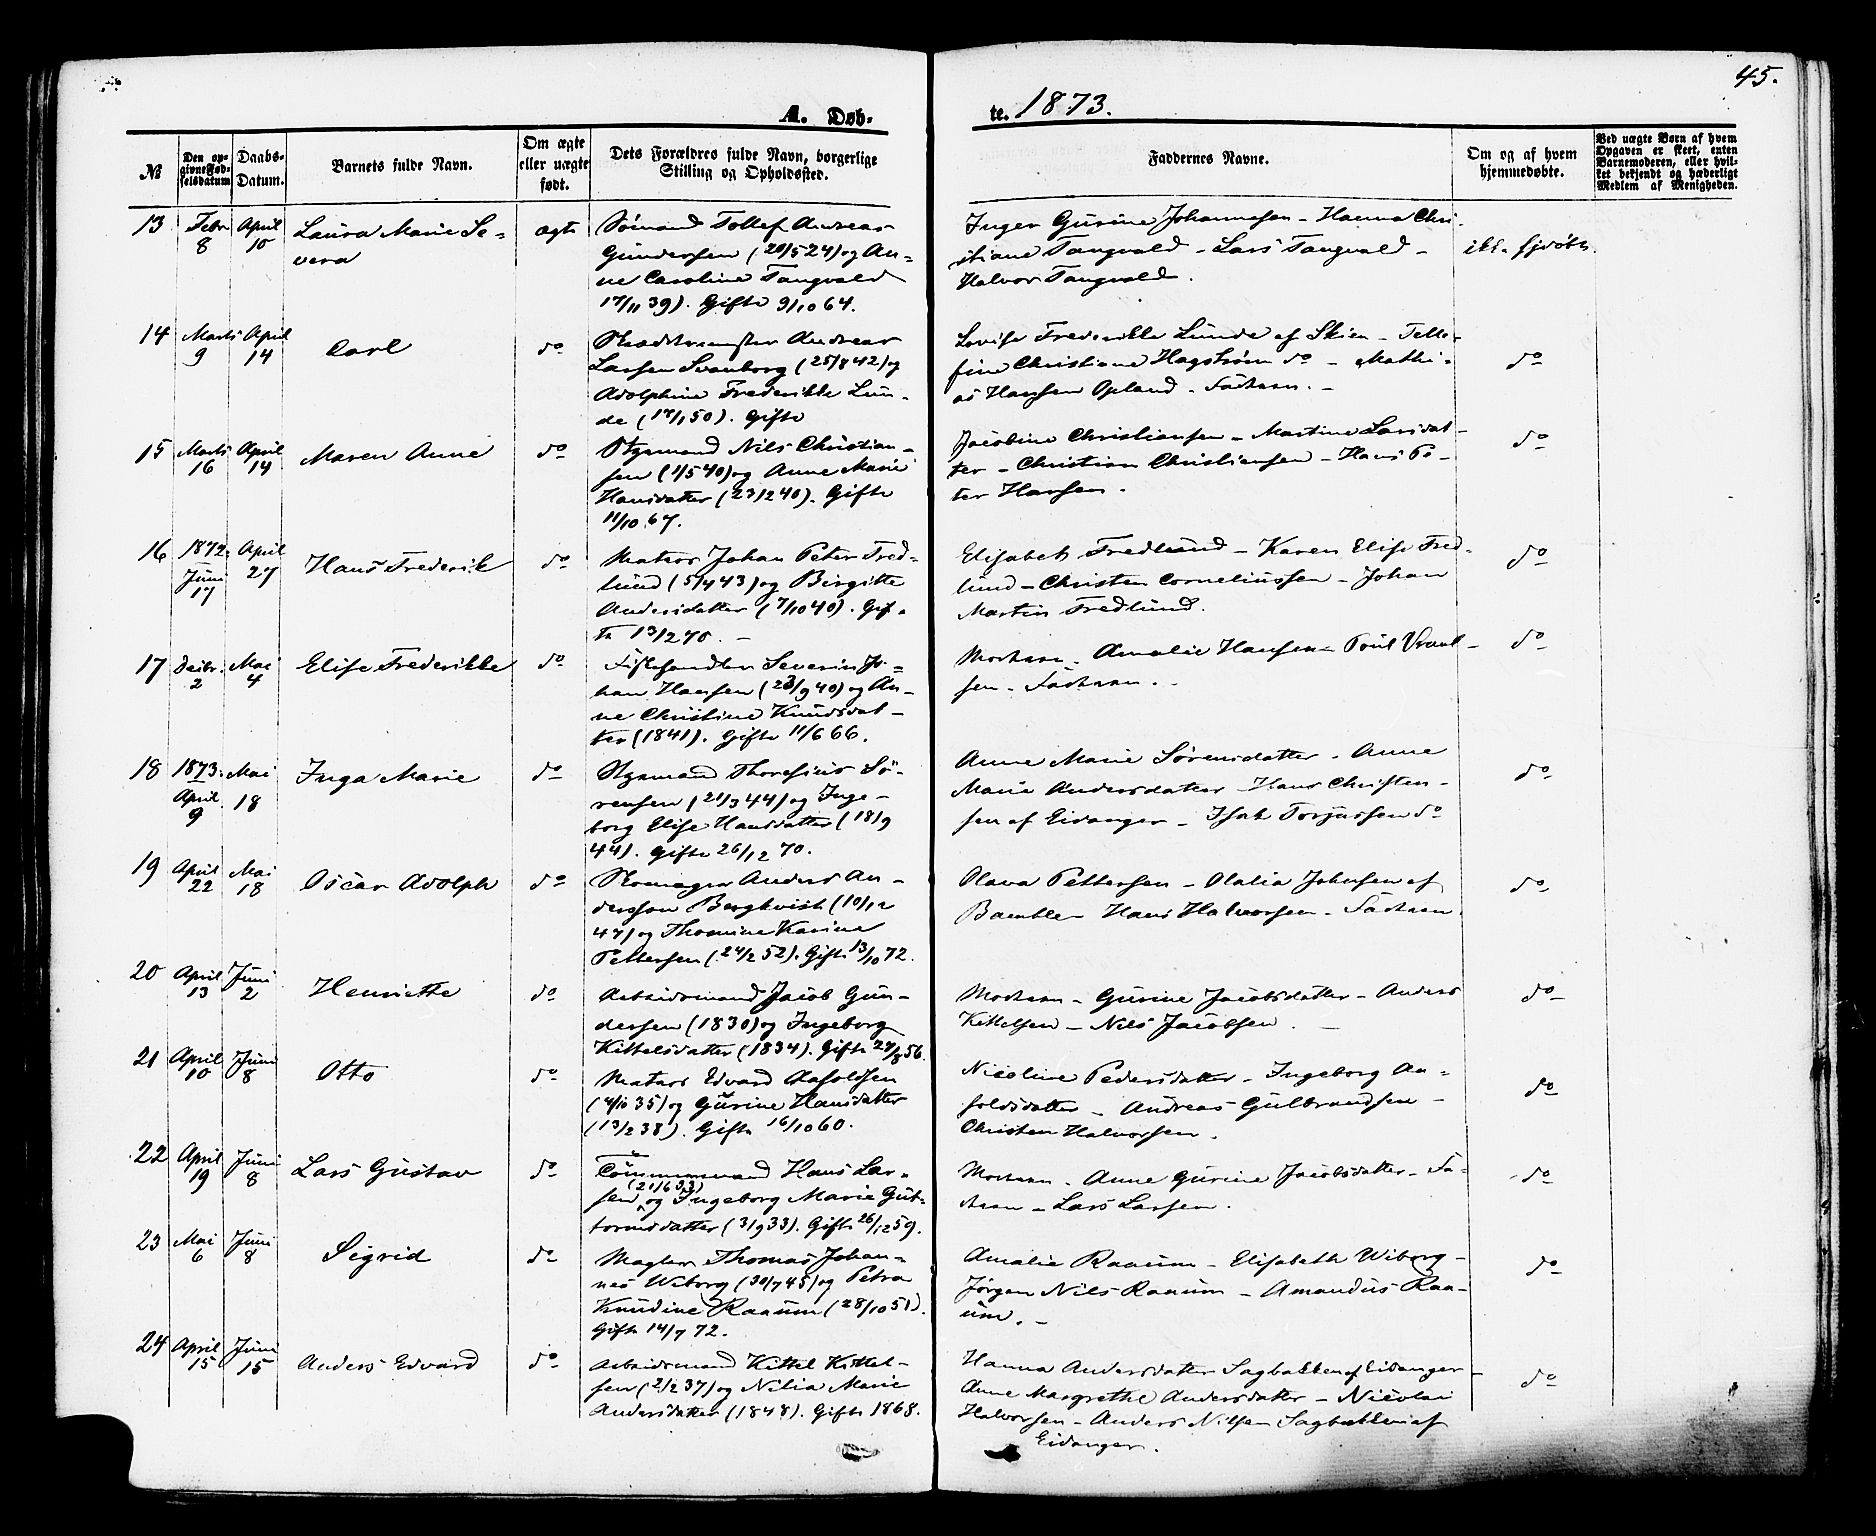 45.
A. Døb-
te. 1873.
№
Den op-
givne Fød-
selsdatum
Daabs-
Datum.
Barnets fulde Navn.
Om ægte
eller uægte
født.
Dets Forældres fulde Navn, borgerlige
Stilling og Opholdssted.
Faddernes Navne.
Om og af hvem
hjemmedøbte.
Ved uægte Børn af hvem
Opgaven er skeet, enten
Barnemoderen, eller hvil-
ket bekjendt og hæderligt
Medlem af Menigheden.
13 Febr 8 April 10 Laura Marie Se-
vera
ægte
Sømand Tollef Andreas
Gundersen (20/5 24) og An-
ne Caroline Tangvald
17/11 39). Gifte 9/10 64.
Inger Gurine Johannesen - Hanna Chri-
stiane Tangvald - Lars Tangvald -
Halvor Tangvald.
14 Marts 9 April 14 Carl do
Andreas
Larsen Svanborg (25/8 42) og
Adolphine Frederikke Lun-
de (17/1 50). Gifte
Lovise Frederikke Lunde af Skien -
Christiane Hagstrøm do - Mathi-
as Hansen Opland - Faderen. -
do
15 Marts 16 April 14 Maren Anne do
Styrmand Nils Christian-
sen (1/5 40) og Anne Marie
Hansdatter (23/2 40). Gifte
11/10 67.
Jacobine Christiansen - Martine Larsdat-
ter - Christian Christiansen - Hans Pe-
ter Hansen.
do
16 1872. Juni 17 April 27 Hans Frederik do
Matros Johan Peter Fred-
lund (5/4 43) og Birgitte
Andersdatter (7/10 40). Gif-
te 13/2 70. -
Elisabeth Fredlund - Karen Elise Fred-
lund - Christen Corneliussen - Johan
Martin Fredlund.
do
17 Decbr. 2 Mai 4 Elise Frederikke do
Fiskehandler Severin Jo-
han Hansen (23/9 40) og An-
ne Christine Knudsdat-
ter (1841). Gifte 11/6 66.
Moderen - Amalie Hansen - Poul
sen - Faderen. -
do
18 1873. April 9 Mai 18 Inga Marie do
Styrmand Thoresius Sø-
rensen (21/3 44) og Inge-
borg Elise Hansdatter (18/9
44). Gifte 26/12 70.
Anne Marie Sørensdatter - Anne
Maria Andersdatter Hans Christen-
sen af Eidanger - Isak Torjussen do
do
19 April 22 Mai 18 Oscar Adolph do
Skomager Anders An-
dersson Bergkvist (10/12
47) og Thomine Karine
Pettersen (24/2 52). Gifte 13/10 72.
Olava Pettersen - Olalia Johnsen af
Bamble - Hans Halvorsen - Faderen.
do
20 April 13 Juni 2 Henriette do
Arbeidsmand Jacob Gun-
dersen (1830) og Ingeborg
Kittelsdatter (1834). Gifte 27/8 56.
Moderen - Gurine Jacobsdatter - Anders
Kittelsen - Nils Jacobsen. -
do
21 April 10 Juni 8 Otto do
Matros Edvard Aasoldsen
(4/10 35) og Gurine Hansdatter
(13/2 38). Gifte 16/10 60.
Nicoline Pedersdatter - Ingeborg Aa-
soldsdatter - Andreas Gulbrandsen -
Christen Halvorsen.
do
22 April 19 Juni 8 Lars Gustav do
Tømmermand Hans Lar-
sen (21/6 33) og Ingeborg Marie Gut-
tormsdatter (3/9 33). Gifte 26/12 59.
Moderen - Anne Gurine Jacobsdatter - Fa-
deren - Lars Larsen.
do
23 Mai 6 Juni 8 Sigrid do
Mægler Thomas Johan-
nes Wiborg (30/7 45) og Petra
Knudine Raaum (28/10 51).
Gifte 14/7 72.
Amalie Raaum - Elisabeth Wiborg -
Jørgen Nils Raaum - Amandus Raa-
um. -
do
24 April 15 Juni 15 Anders Edvard do
Arbeidsmand Kittel Kittel-
sen (2/2 37) og Nilia Marie
Andersdatter (1848). Gifte 1868.
Hanna Andersdatter Sagbakken af Eidanger -
Anne Margrethe Andersdatter - Nicolai
Halvorsen - Anders Nilsen Sagbakken af
Eidanger.
do